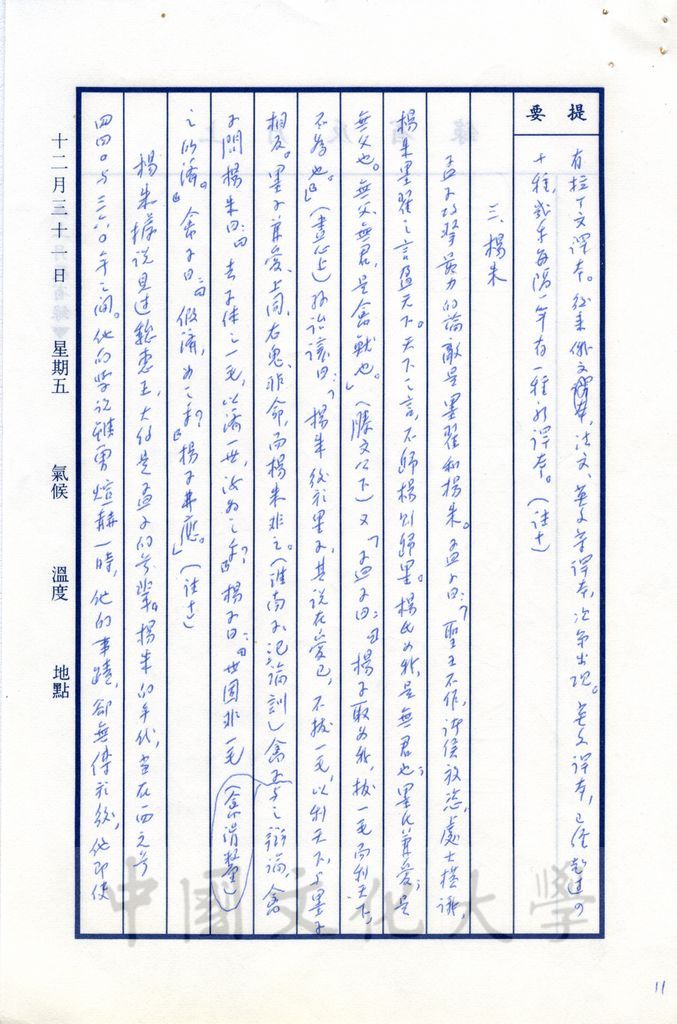 提要
有拉丁文譯本。後來俄文譯本，法文、英文等譯本，次第出現。英文譯本，已經超過四
十種，或平每隔一年有一種新譯本。（註十）
三、楊朱
孟子攻擊最力的論敵是墨翟和楊朱。孟子曰：「聖王不作，諸侯放恣，處士橫議，
楊朱墨翟之言盈天下。天下之言，不歸楊則歸墨。楊氏為我，是無君也；墨氏兼愛，是
無父也。無父無君，是禽獸也。」（滕文公下）又「孟子曰：『楊子取為我，拔一毛而利天下，
不為也。』（盡心上）孫詒讓曰：「楊朱後於墨子，其說在愛己，不拔一毛，以利天下，與墨子
相反。墨子兼愛、上同、右鬼、非命，而楊朱非之。（淮南子氾論訓）禽子與之辯論，禽
子問楊朱曰：『去子體之一毛，以濟一世，汝為之乎？』楊子曰：『世固非一毛（禽滑釐）
之所濟。』禽子曰：『假濟，為之乎？』楊子弗應。」（註十一）
楊朱據說見過魏惠王，大約是孟子的前輩。楊朱的年代，當在西元前
四四〇與三六〇年之間。他的學說雖曾煊赫一時，他的事蹟，卻無傳於後，他即使
十二月三十一日 星期五 氣候 溫度 地點
中國文化大學
11